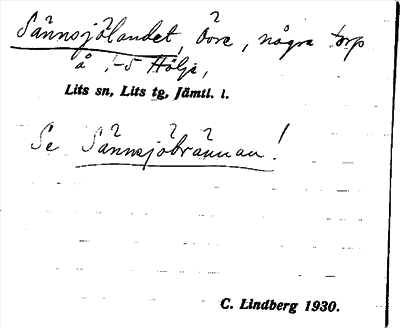 Sännsjölandet, Övre, några torp
å 1-5 Hölje,
Lits sn, Lits tg, Jämtl. l.
Se Sännsjöbrännan!
C. Lindberg 1930.